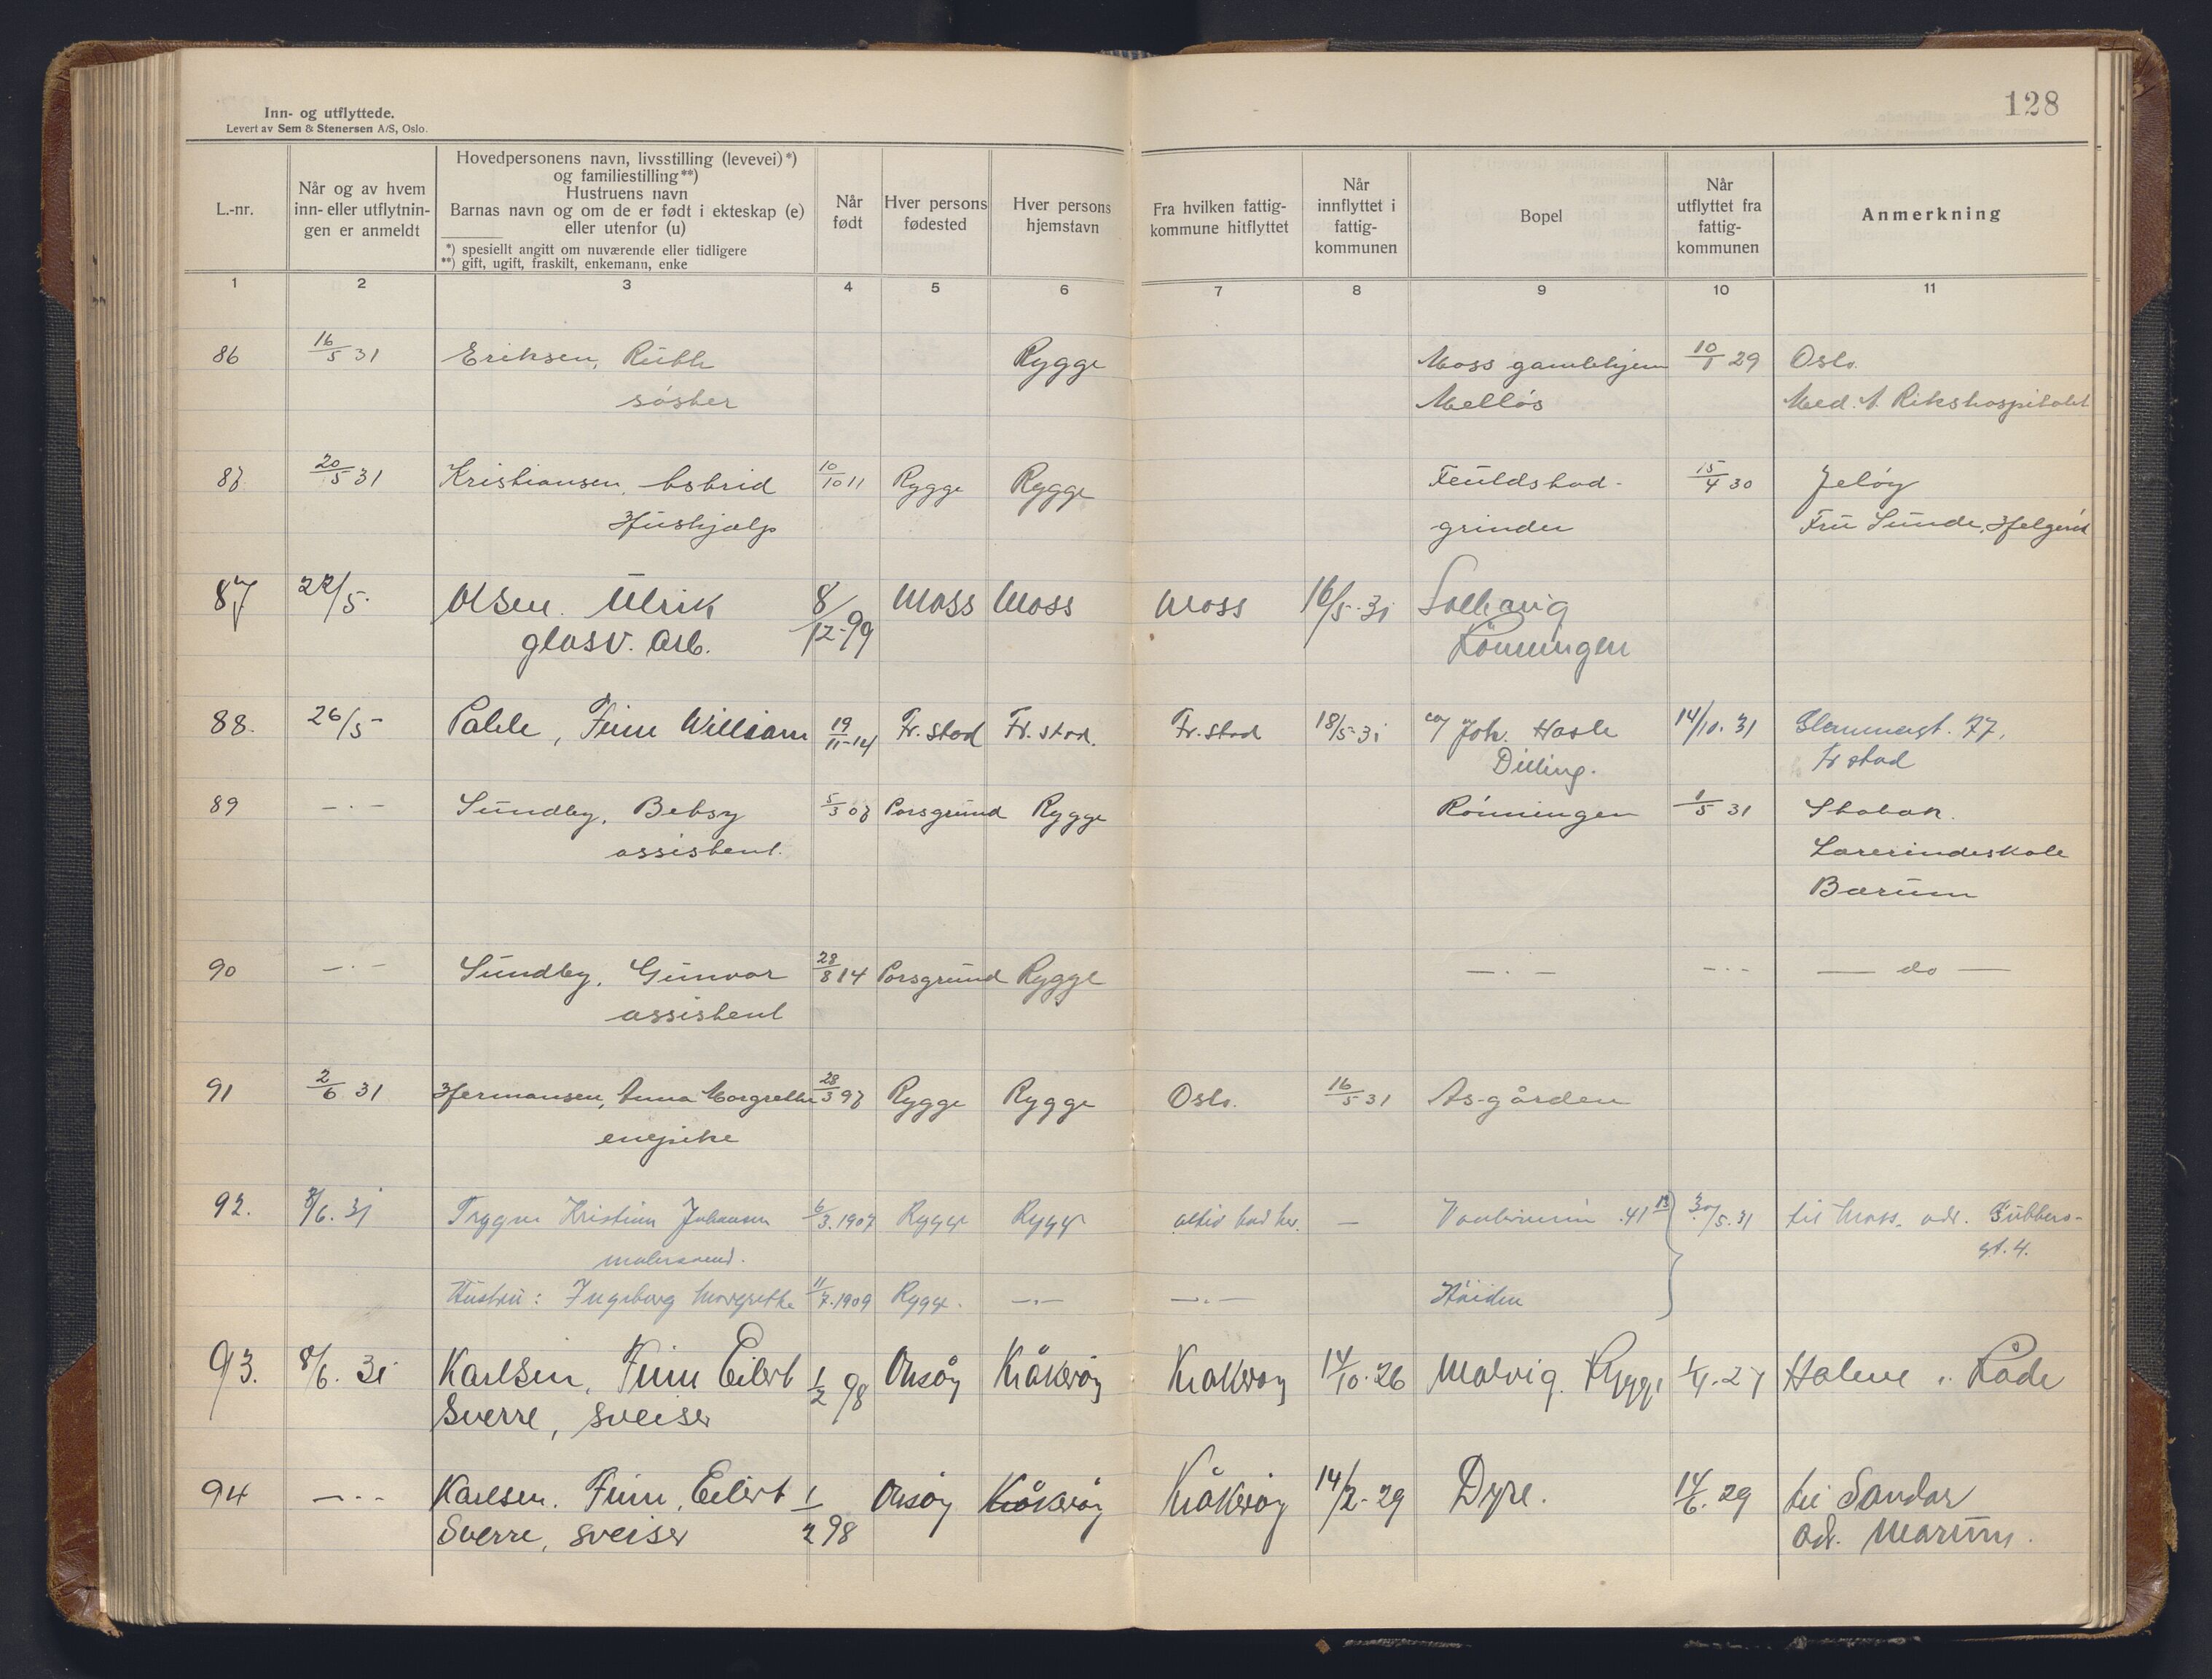 128
Inn- og utflyttede.
Levert av Sem & Stenersen A/S, Oslo.
L.-nr.
Når og av hvem inn- eller utflytnin-gen er anmeldt
Hovedpersonens navn, livsstilling (levevei)*)
og familiestilling**)
Hustruens navn
Barnas navn og om de er født i ekteskap (e)
eller utenfor (u)
*) spesiellt angitt om nuværende eller tidligere
**) gift, ugift, fraskilt, enkemann, enke
Når født
Hver persons fødested
Hver persons hjemstavn
Fra hvilken fattig-kommune hitflyttet
Når innflyttet i fattig-kommunen
Bopel
Når utflyttet fra fattig-kommunen
Anmerkning
1 2 3 4 5 6 7 8 9 10 11
86 16/5 31 Eriksen, Ruth Rygge Moss gamlehjem 10/1 29 Oslo.
søster Melløs Med. A. Rikshospitalet
87 20/5 31 Kristiansen, Astrid 10/10 11 Rygge Rygge 15/4 30 Jeløy
Hushjælp grinder Fru Sunde,
87 22/5. Olsen. Ulrik 8/12-99 Moss Moss Moss 16/5-31 Solhavig
glasv. Arb. Rønningen
88. 26/5- Finn William 19/11-14 Fr.stad Fr.stad. Fr.stad 18/5-31 Joh. Hasle 14/10. 31 77,
Dilling. Fr stad
89 -·- Sundby, Betsy 5/3 07 Porsgrund Rygge Rønningen 1/5 31 Stabæk.
assistent. Lærerindeskole
Bærum
90 -·- Sundby, Gunvor 28/8 14 Porsgrund Rygge -·- -·- — do —
assistent
91 2/6 31 Hermansen, Anna Margrethe 28/3 97 Rygge Rygge Oslo. 16/5 31 Åsgården
enepike
92. 8/6. 31 Trygve Kristian Johansen 6/3. 1907 Rygge Rygge altid bod her. — 41 30/5. 31 til Moss. adr.
malersvend. gt. 4.
Hustru: Ingeborg Margrethe 11/7. 1909 Rygge. -·- -·- Høiden
93. 8/6. 31 Karlsen, Finn Eilert 1/2 98 Onsøy Kråkerøy Kråkerøy 14/10. 26 Malvig. Rygge Halene i Råde
Sverre, sveiser
94 -·- Karlsen. Finn, Eilert 1/2 98 Onsøy Kråkerøy Kråkerøy 14/2-29 Dyre. 14/6. 29 til Sandar
Sverre, sveiser adr. Marum.